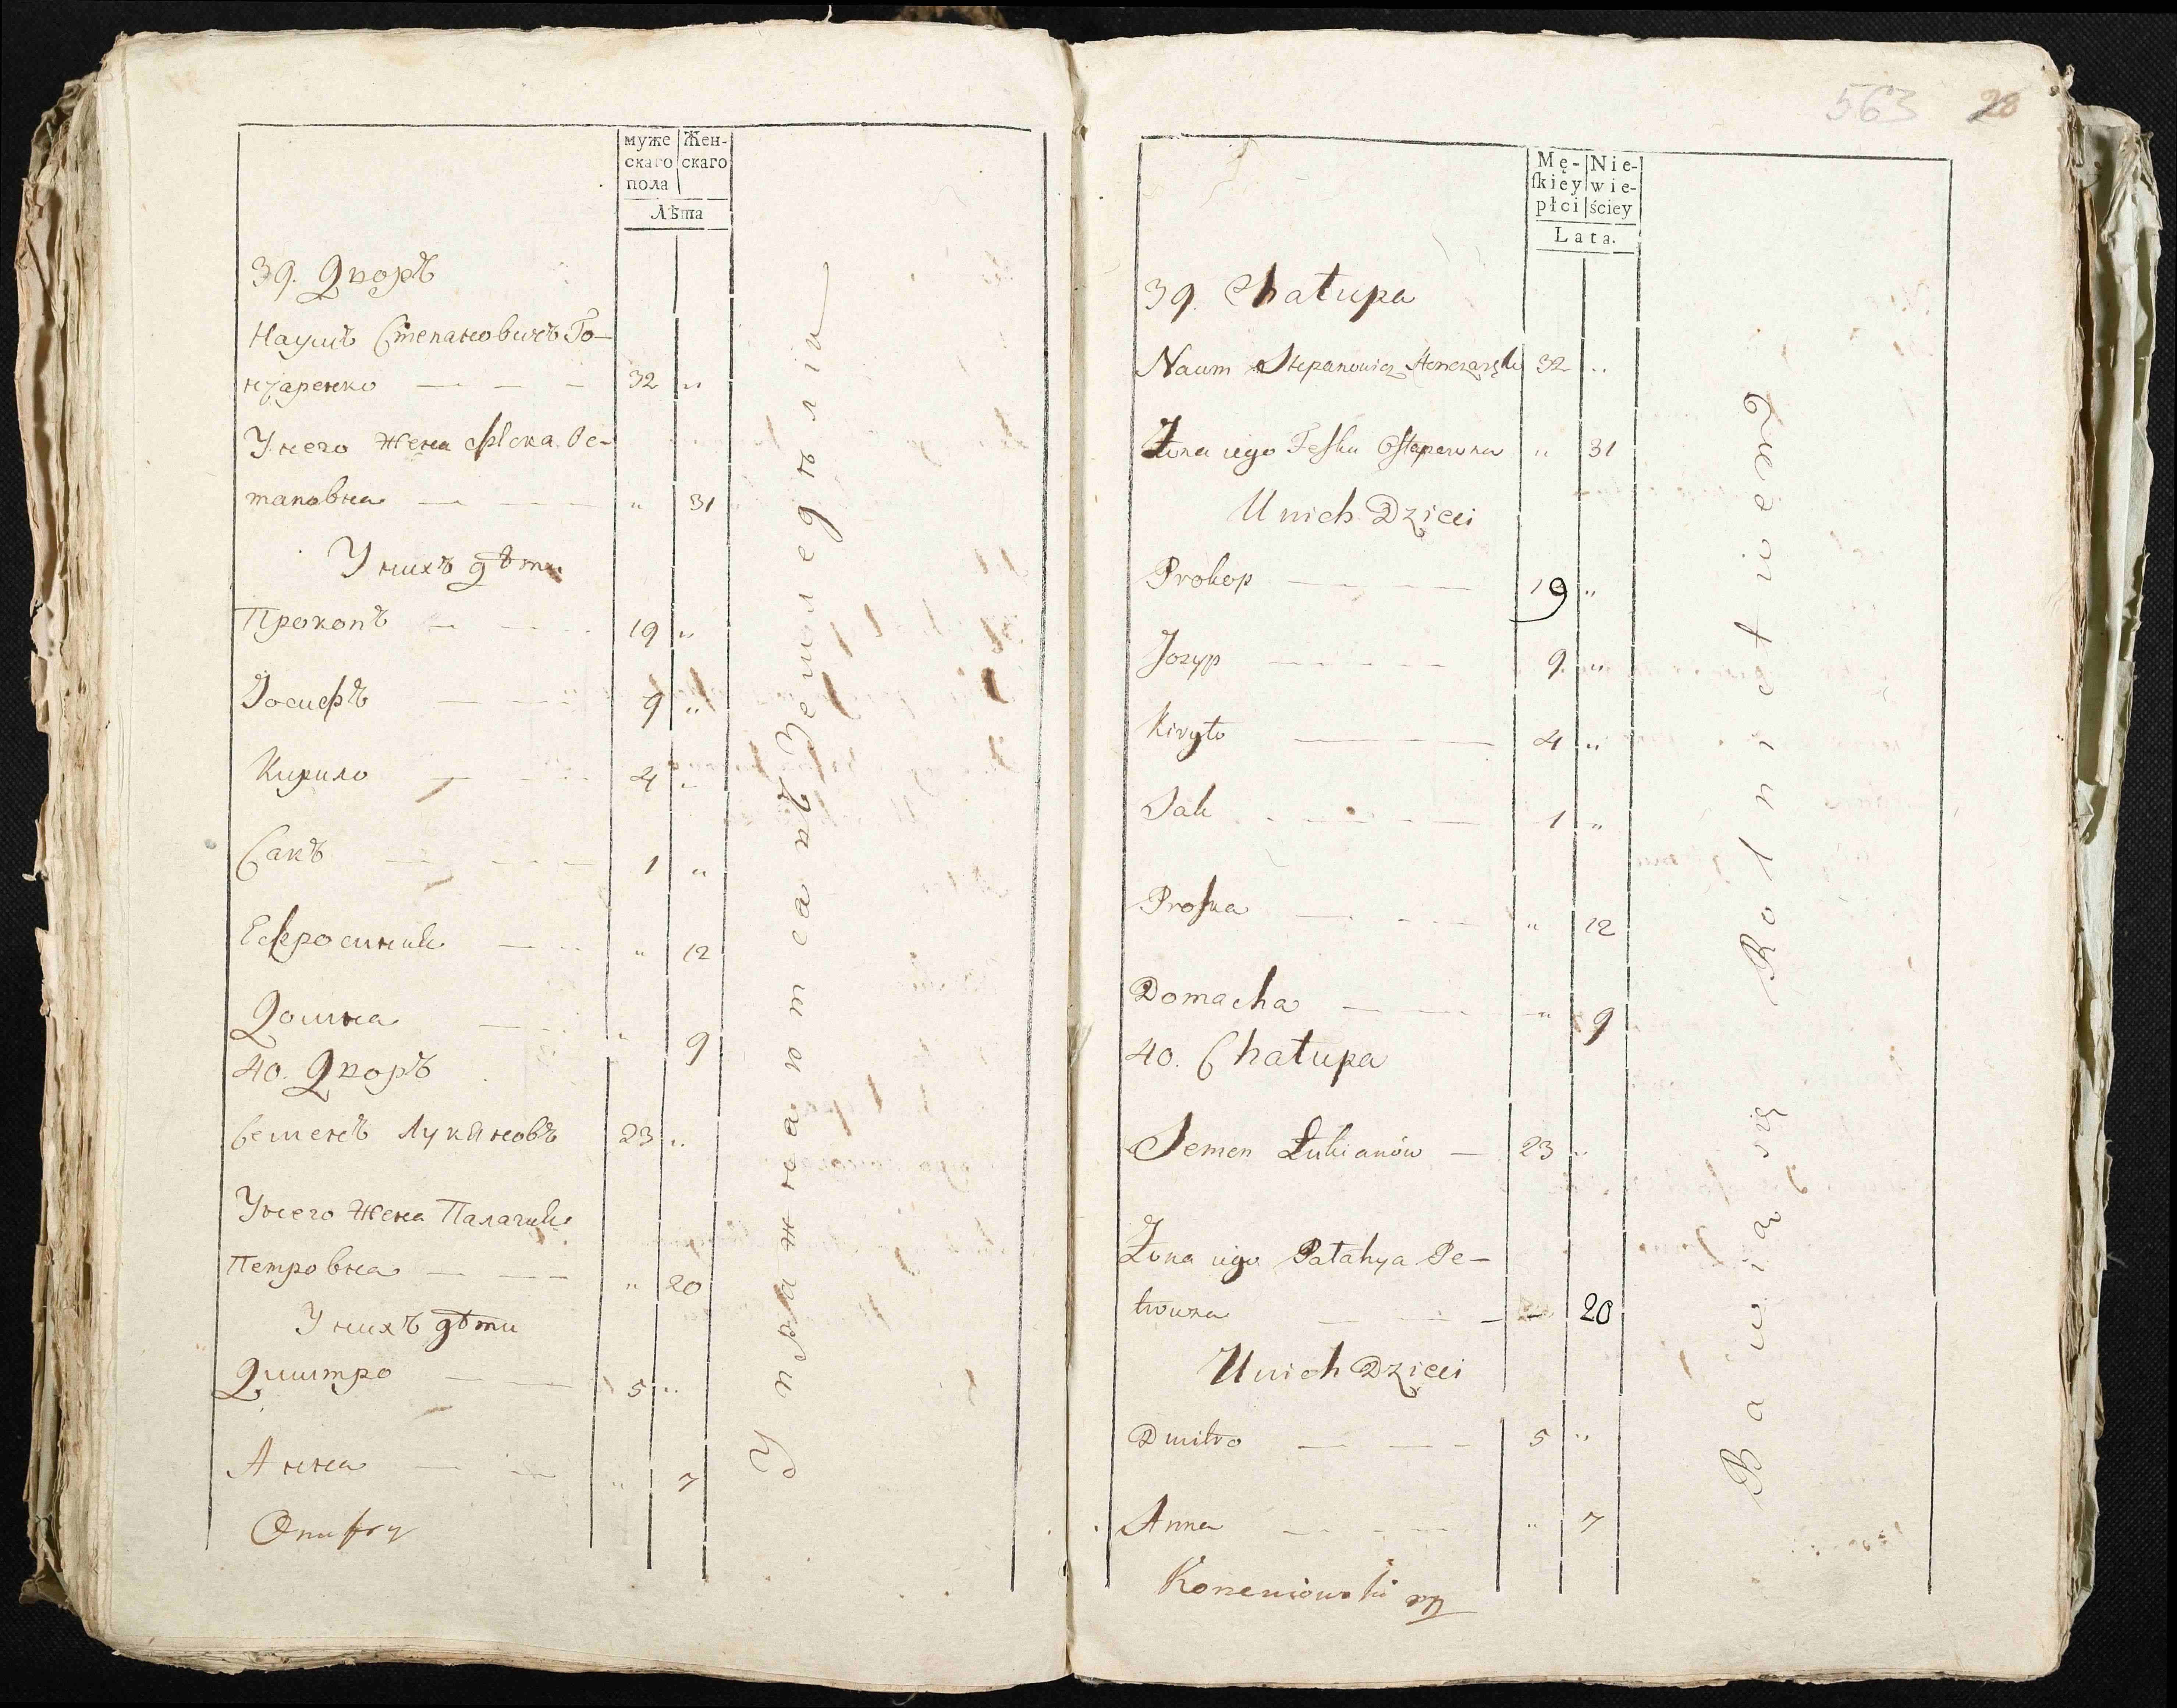 муже
скаго
пола
Жен-
скаго
Лѣта
39. Дворъ
Наумъ Степановичъ Го-
нчаренко — — — 32 „
У него жена Феска Ос-
таповна — — — „ 31
У нихъ дѣти
Прокопъ — — — 19 „
Іосифъ — — — 9 „
Кирило — — — 4 „
Сакъ — — — 1 „
Ефросинія — — „ 12
Домна — — „ 9
40. Дворъ
Семенъ Лукяновъ 23 „
У него жена Палагия
Петровна — — — „ 20
У нихъ дѣти
Дмитро — — 5 „
Анна — — „ 7
Onufry
Упражнаютса въ Земледѣліи
563 28
Mę-
skiey
płci
Nie-
wie-
ściey
Lata.
39. Chałupa
Naum Stepanowicz Honczaręko 32 „
Żona iego Feska Ostapowna „ 31
U nich Dzieci
Prokop — — — 19 „
Jozyp — — — 9 „
Kiryło — — 4 „
Sak — — — 1 „
Proska — — — „ 12
Domacha — — „ 9
40. Chałupa
Semen Łukianów — 23 „
Żona iego Pałahya Pe-
trowna — — — — 20
U nich Dzieci
Dmitro — — — 5 „
Anna — — — „ 7
Korzeniowski mp
Bawią się Rolnictwem